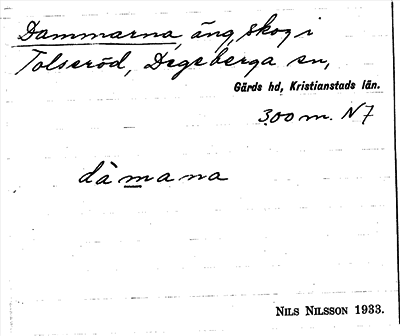 Dammarna, äng, skog i
Tolseröd, Degeberga sn,
Gärds hd, Kristianstads län.
300 m. N 7
dàmana
NILS NILSSON 1933.